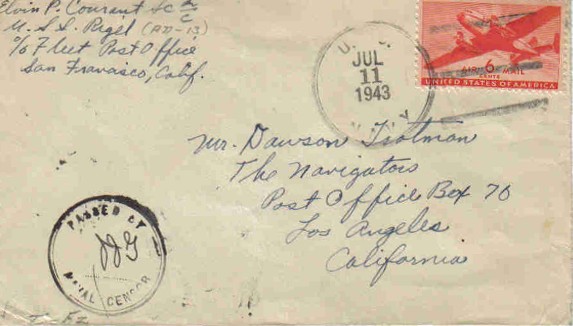 Elvin P. Courant Sc 2/c
U.S.S. Rigel (AD-13)
c/o Fleet Post Office
San Fransisco, Calif.
U. S.
JUL
11
1943
NAVY
AIR 6 MAIL
CENTS
UNITED STATES OF AMERICA
Mr. Dawson Trotman
The Navigators
Post Office Box 70
Los Angeles
California
PASSED BY
NAVAL CENSOR